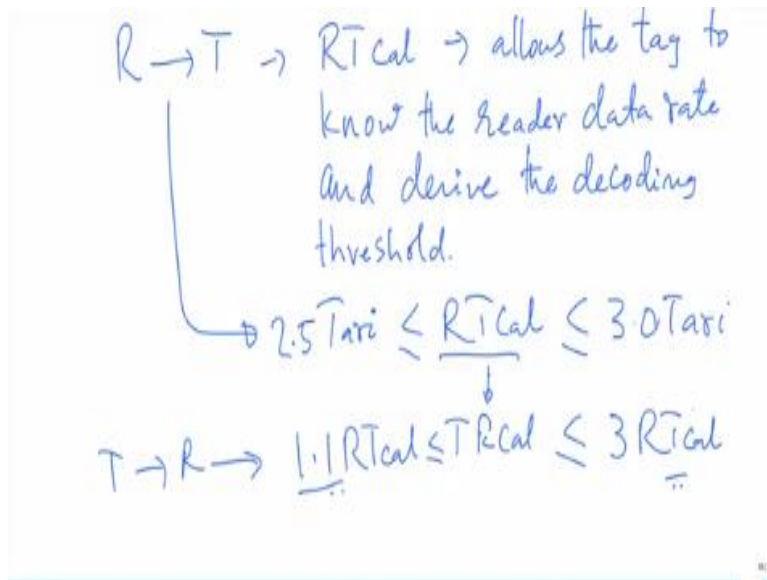 R → T → RTCal → allows the tag to
know the reader data rate
and derive the decoding
threshold.
2.5Tari ≤ RTCal ≤ 3.0Tari
T → R → 1.1RTcal ≤ TRCal ≤ 3RTcal